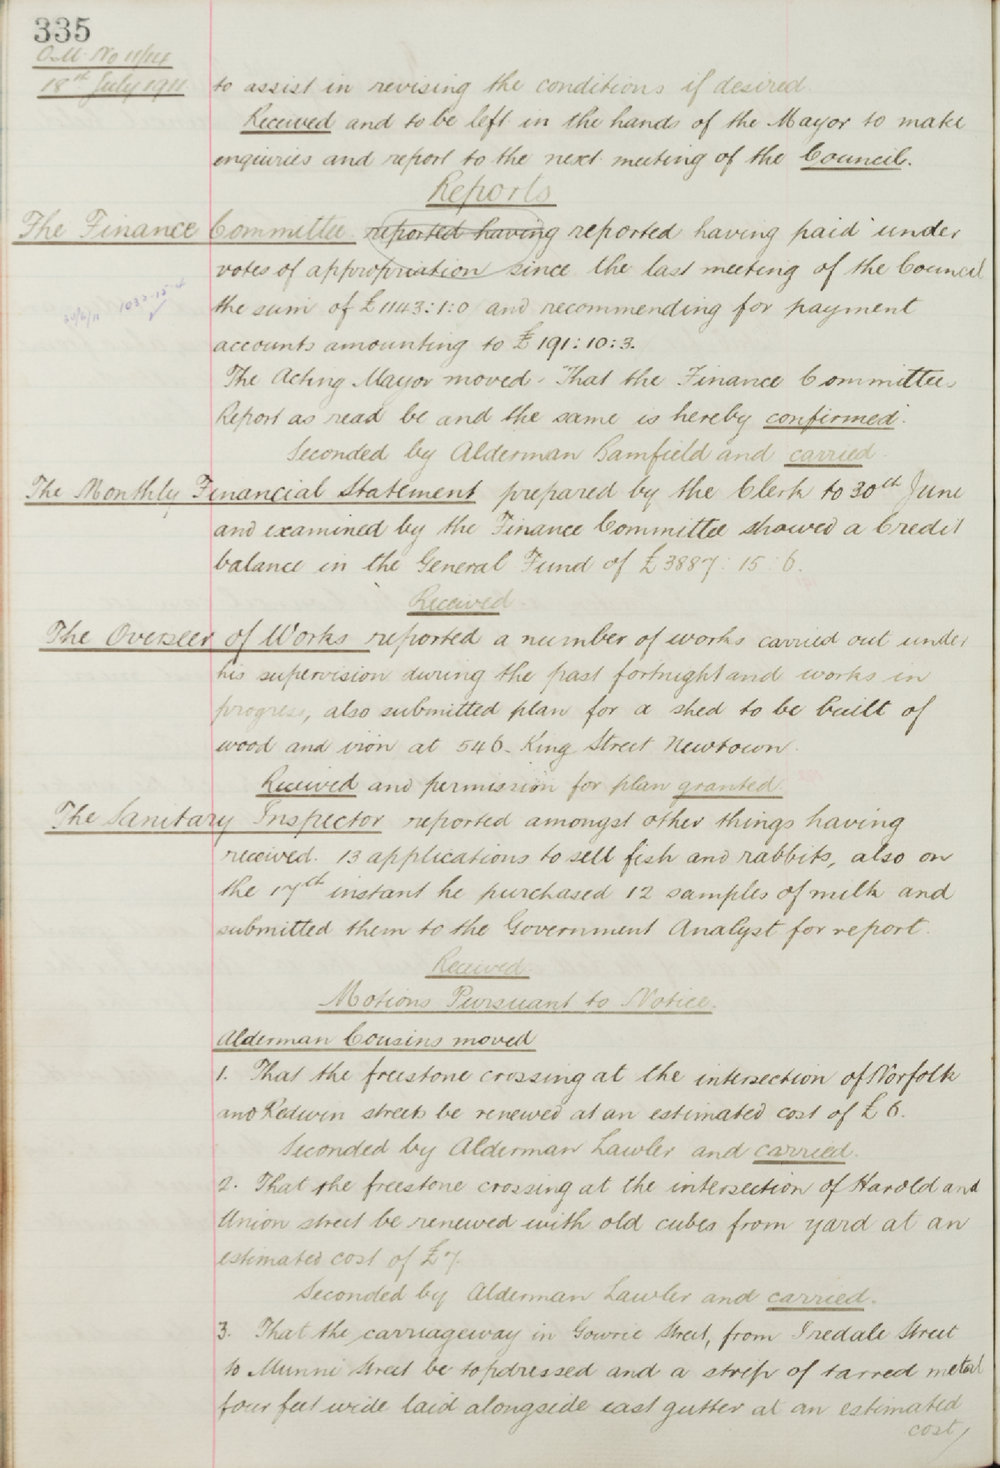 335
O.M. No 11/14
18th July 1911
to assist in revising the conditions if desired.
Received and to be left in the hands of the Mayor to make
enquiries and report to the next meeting of the Council.
Reports
The Finance Committee reported having reported having paid under
votes of appropriation since the last meeting of the Council
the sum of £1143:1:0 and recommending for payment
accounts amounting to £191:10:3.
The Acting Mayor moved. That the Finance Committees
Report as read be and the same is hereby confirmed.
Seconded by Alderman Bamfield and carried.
The Monthly Financial Statement prepared by the Clerk to 30th June
and examined by the Finance Committee showed a Credit
balance in the General Fund of £3887:15:6.
Received.
The Overseer of Works reported a number of works carried out under
his supervision during the past fortnight and works in
progress, also submitted plan for a shed to be built of
wood and iron at 546 King Street Newtown.
Received and permission for plan granted
The Sanitary Inspector reported amongst other things having
received. 13 applications to sell fish and rabbits, also on
the 17th instant he purchased 12 samples of milk and
submitted them to the Government Analyst for report.
Received
Motions Pursuant to Notice.
Alderman Cousins moved
1. That the freestone crossing at the intersection of Norfolk
and Kedwin streets be renewed at an estimated cost of £6.
Seconded by Alderman Lawler and carried.
2. That the freestone crossing at the intersection of Harold and
Union street be renewed with old cubes from yard at an
estimated cost of £7.
Seconded by Alderman Lawler and carried.
3. That the carriageway in Gowrie Street, from Iredale Street
to Munni Street be topdressed and a strip of tarred metal
four feet wide laid alongside east gutter at an estimated
cost/